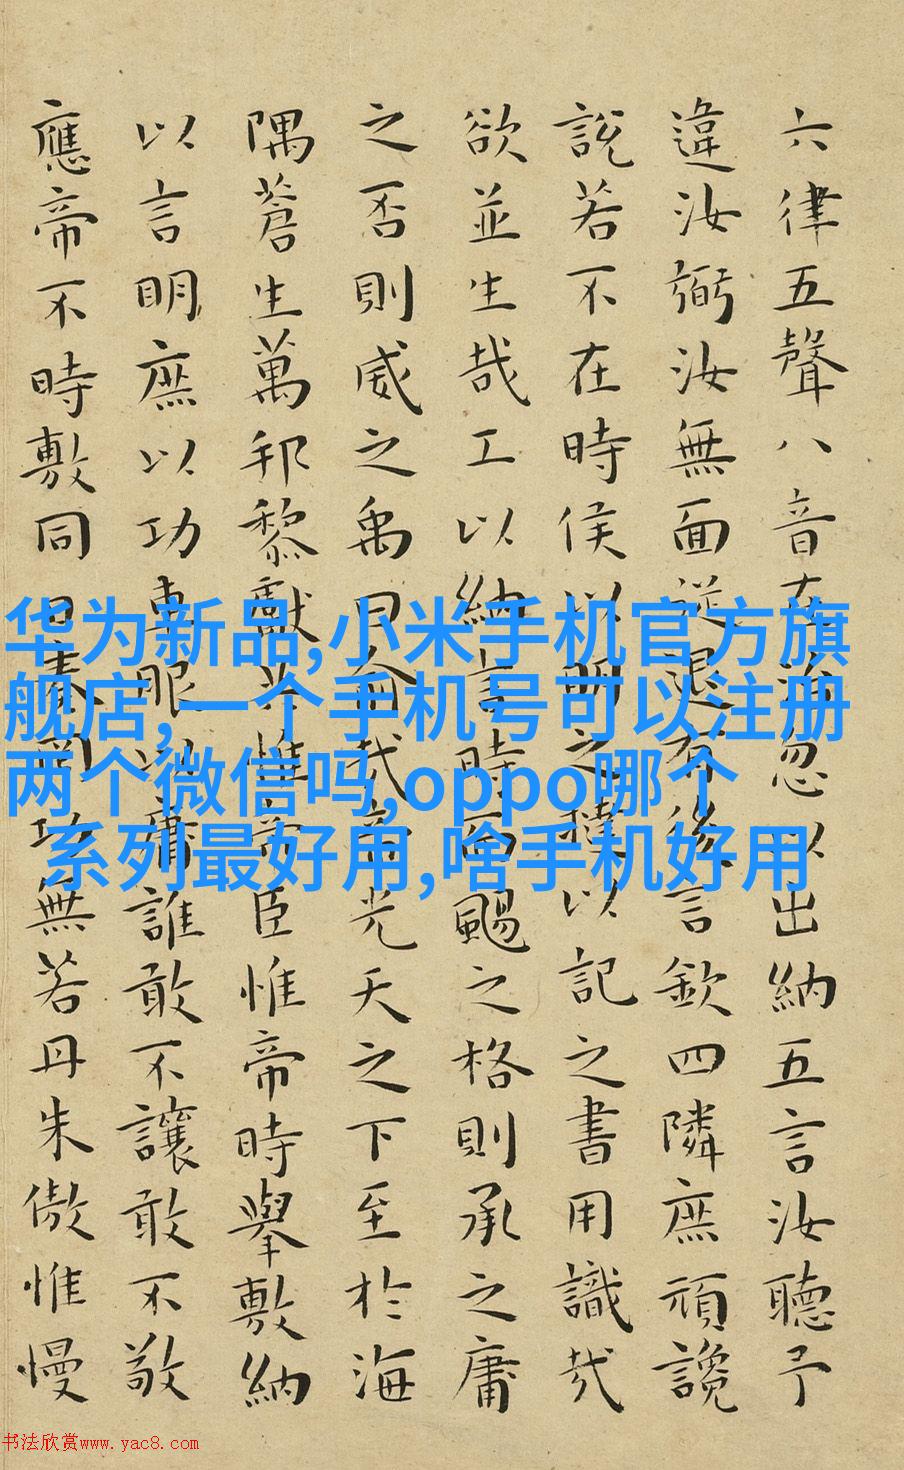 六律五聲八音在治忽以出納五言汝聽予
違汝弼汝無面從退有後言欽四隣庶頑讒
說若不在時侯以明之撻以記之書用識哉
欲並生哉工以納言時而颺之格則承之庸
之否則威之禹曰俞哉帝光天之下至於海
隅蒼生萬邦黎獻共惟帝臣惟帝時舉敷納
以言明庶以功車服以庸誰敢不讓敢不敬
應帝不時敷同日奏罔功無若丹朱傲惟慢
华为新品,小米手机官方旗
舰店,一个手机号可以注册
两个微信吗,oppo哪个
系列最好用,啥手机好用
书法欣赏www.yac8.com